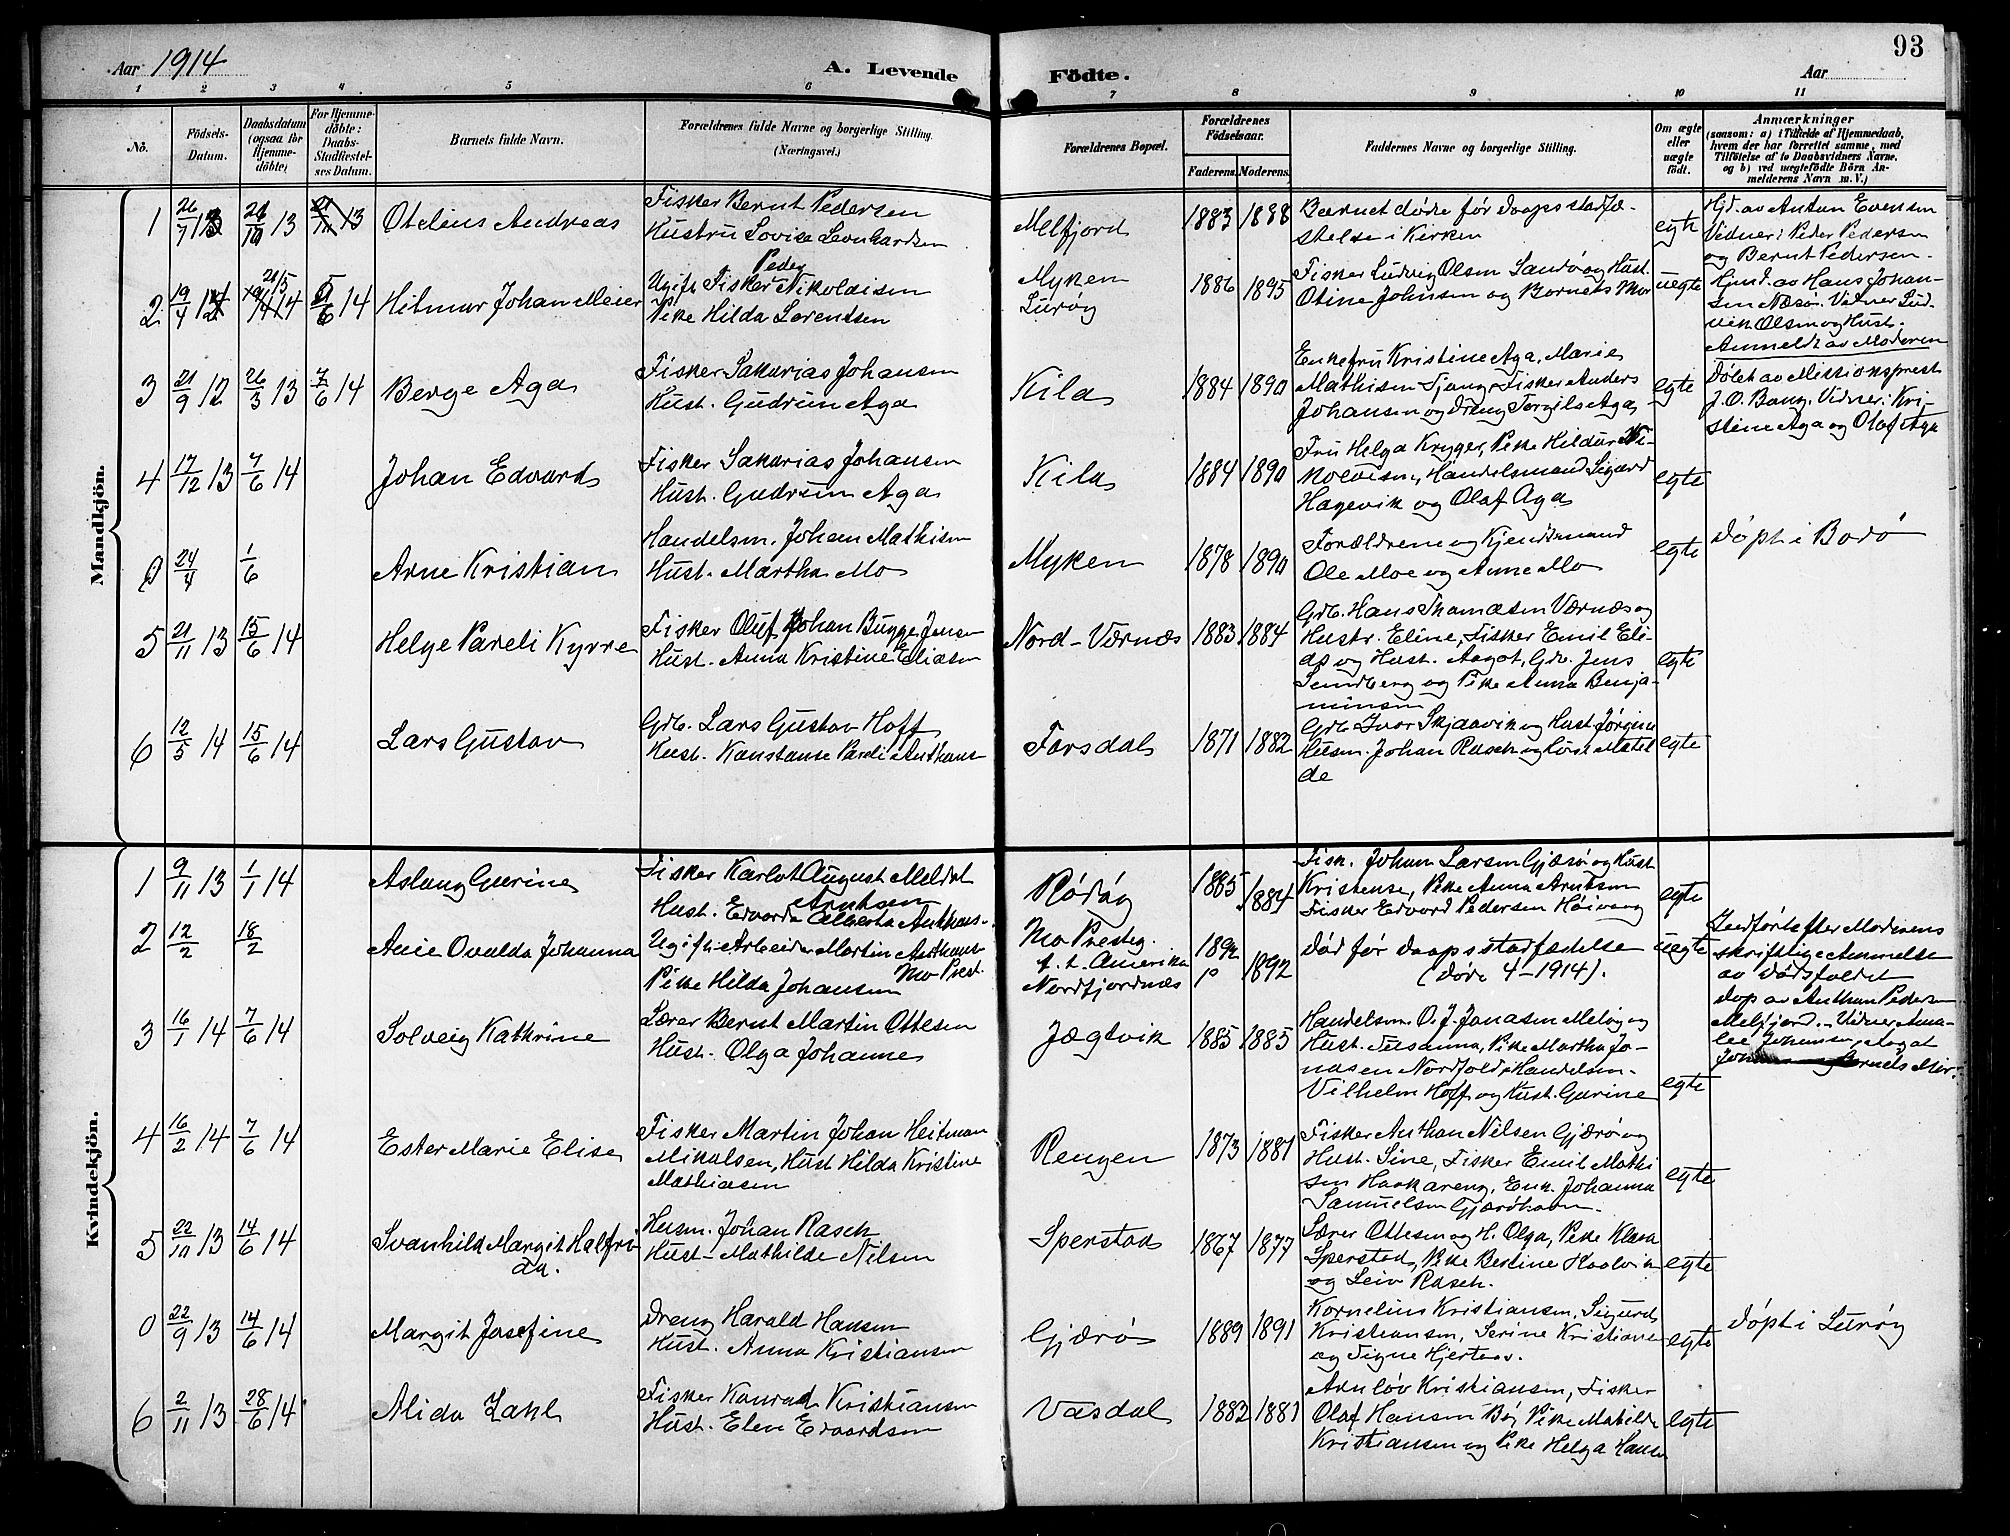 Aar 1914
A. Levende
Födte.
Aar
93
1 2 3 4 5 6 7 8 9 10 11
No.
Födsels-Datum.
Daabsdatum (ogsaa for Hjemmedöbte)
For Hjemmedöbte: Daabs-Stadfæstelses Datum.
Barnets fulde Navn.
Forældrenes fulde Navne og borgerlige Stilling.
(Næringsvei.)
Forældrenes Bopæl.
Forældrenes Födselsaar.
Faderens. Moderens.
Faddernes Navne og borgerlige Stilling.
Om ægte eller uægte födt.
Anmærkninger
(saasom: a) i Tilfælde af Hjemmedaab, hvem der har forrettet samme, med Tilföielse af to Daabsvidners Navne, og b) ved uægtefödte Börn Anmelderens Navn m. V.)
Mandkjön.
1 26/7 13 13 Otelius Andreas
Fisker Bernt Pedersen
Hustru Lovise Leonhardsen
Melfjord 1883 1888
Barnet døde før daapsstadfæ-
stelse i Kirken
egte
Hjd. av Anton Evensen
Vidner: Peder Pedersen
og Bernt Pedersen.
2 19/4 21/5 14 5/6 14 Hilmar Johan Meier
Ugift Fisker Peder Nikolaisen
Pike Hilda Lorentsen
Myken
Lurøy
1886 1895
Fisker Ludvig Olsen Sandø og Hust.
Otine Johnsen og Barnets Mor
uegte
Hjmd. av Hans Johan-
sen Næsø. Vidner Lud-
vik Olsen og Hust.
Anmeldt av Moderen
3 21/9 12 26/3 13 7/6 14 Berge Aga
Fisker Sakarias Johansen
Hust. Gudrun Aga
Kila 1884 1890
Enkefru Kristine Aga, Marie
Mathisen Tjong, Fisker Anders
Johansen og Dreng Torgils Aga
egte
Døbt av Missionsprest
J. O. Bang. Vidner: Kri-
stine Aga og Olaf Aga
4 17/12 13 7/6 14 Johan Edvard
Fisker Sakarias Johansen
Hust. Gudrun Aga
Kila 1884 1890
Fru Helga Krygger, Pike Hildur Ni-
kolaisen, Handelsmand Sigurd
Hagevik og Olaf Aga
egte
0 24/4 1/6 Arne Kristian
Handelsm. Johan Mathisen
Hust. Martha Mo
Myken 1878 1890
Forældrene og Kjendsmand
Ole Moe og Anne Mo
egte
Døpt i Bodø
5 21/11 13 15/6 14 Helge Pareli Kyrre
Fisker Oluf Johan Bugge Jensen
Hust. Anna Kristine Eliasen
Nord-Værnæs 1883 1884
Grb. Hans Thomasen Værnæs og
Hustr. Eline, Fisker Emil Eli-
as og Hust. Aagot, Grb. Jens
Sundberg og Pike Anna Benja-
minsen
egte
6 12/5 14 15/6 14 Lars Gustav
Grb. Lars Gustav Hoff
Hust. Konstanse Pareli Anthons-
Forsdal 1871 1882
Grb. Ivar Skjaavik og Hust. Jørgine
Husm. Johan Rasch og Hust. Matil
de
egte
Kvindekjön.
1 9/11 13 1/1 14 Aslaug Gurine
Fisker Karlot August Meldal
Hust. Edvarda Alberta Arntsen
Rødøy 1885 1884
Fisk. Johan Larsen Gjæsø og Hust
Kristense, Pike Anna Arntsen
Fisker Edvard Pedersen Høivaag
egte
2 12/2 18/2 Anie Ovalda Johanna
Ugift Arbeider Martin Anthons-
Mo Prest.
Pike Hilda Johansen
Mo Prestg.
f. t. Amerika
Nordfjordnæs
1892
Død før daapsstadfæstelse
(døde 4-1914).
uegte
Indført efter Moderens
skriftlige Anmeldelse
av dødsfaldet
Døp av Anthon Pedersen
Melfjord. Vidner Ama-
lie Johansen, Aagot
Barnets Mor.
3 16/1 14 7/6 14 Solveig Kathrine
Lærer Bernt Martin Ottesen
Hust. Olga Johanne
Jægtvik 1885 1885
Handelsm. O. J. Jonasen Meløy og
Hust. Susanna, Pike Martha Jo-
nasen Nordfold, Handelsm.
Vilhelm Hoff og Hust. Gurine
egte
4 16/2 14 7/6 14 Ester Marie Elise
Fisker Martin Johan Heitman
Mikalsen, Hust Hilda Kristine
Mathiasen
Rengen 1873 1881
Fisker Anthon Nilsen Gjærø og
Hust. Sine, Fisker Emil Mathi
sen Haakareng, Enk. Johanna
Samuelsen Gjærøhavn.
egte
5 22/10 13 14/6 14 Svanhild Margit Halfri
da.
Husm. Johan Rasch
Hust. Mathilde Nilsen
Sperstad 1867 1877
Lærer Ottesen og H. Olga, Pike Klara
Sperstad, Pike Bertine Kaalvik
og Leiv Rasch.
egte
0 22/9 13 14/6 14 Margit Josefine
Dreng Harald Hansen
Hust. Anna Kristiansen
Gjærø 1889 1891
Kornelius Kristiansen, Sigurd
Kristiansen, Serine Kristianse
og Signe Hjertaas.
egte
Døpt i Lurøy
6 2/11 13 28/6 14 Alida Zahl
Fisker Konrad Kristiansen
Hust. Elen Edvardsen
Vasdal 1882 1881
Arnlov Kristiansen, Fisker
Olaf Hansen Bø, Pike Mabilde
Kristiansen og Pike Helga Hanse
egte